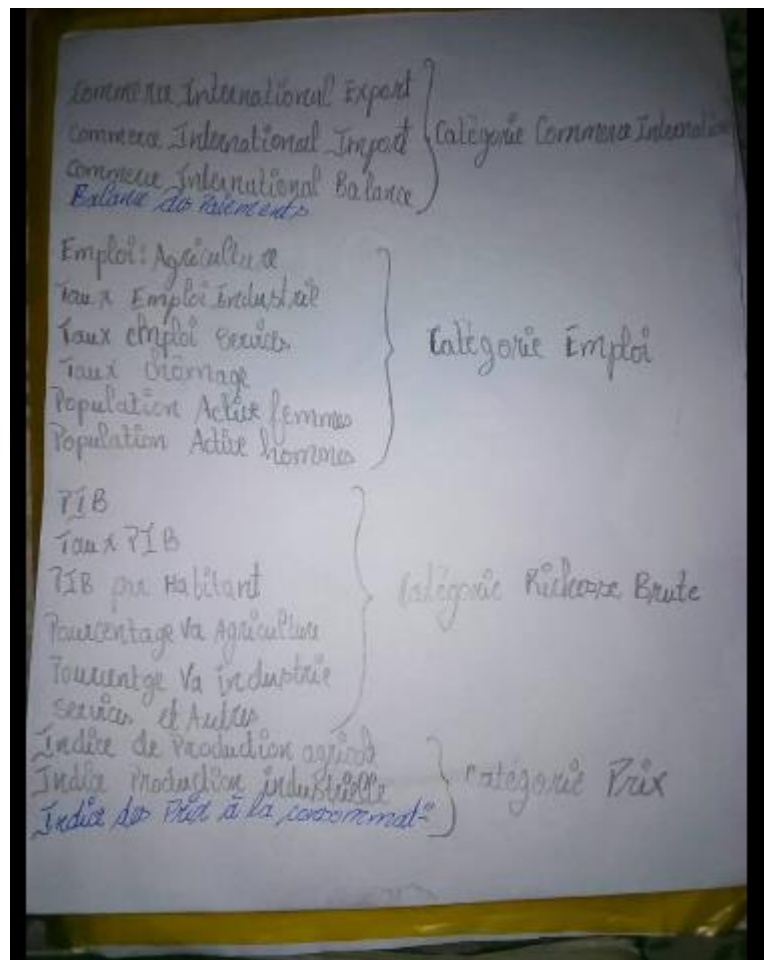 Commerce International Export
Commerce International Import
Commerce International Balance
Balance des Paiements
Catégorie Commerce Internation
Emploi : Agriculture
Taux Emploi Industriel
Taux emploi services
Taux chômage
Population Active femmes
Population Active hommes
Catégorie Emploi
PIB
Taux PIB
PIB par Habitant
Pourcentage Va Agriculture
Pourcentge Va industrie
services et Autres
Catégorie Richesse Brute
Indice de Production agricol
Indice Production industrielle
Indice des Prix à la consommat-
Catégorie Prix